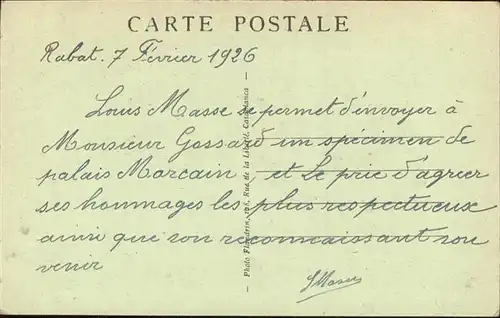 CARTE POSTALE
Rabat. 7 Février 1926
Louis Masse se permet d'envoyer à
Monsieur Gossard un spécimen de
palais Marcain et Le prie d'agréer
ses hommages les plus respectueux
ainsi que son reconnaissant sou
venir
LMasse
Photo Flandrin, Rue de la Liberté, Casablanca